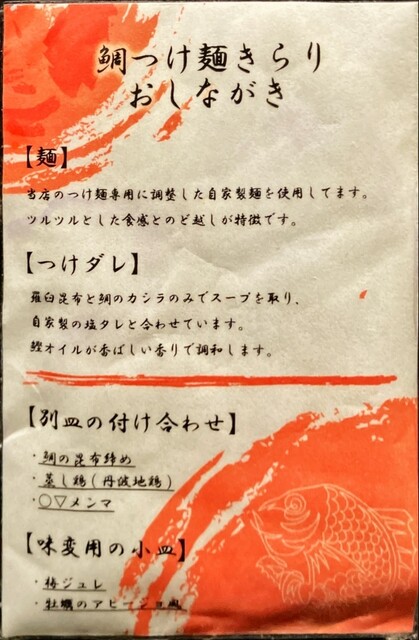 鯛つけ麺きらり
おしながき
【麺】
当店のつけ麺専用に調整した自家製麺を使用してます。
ツルツルとした食感とのど越しが特徴です。
【つけダレ】
羅臼昆布と鯛のカシラのみでスープを取り、
自家製の塩タレと合わせています。
鰹オイルが香ばしい香りで調和します。
【別皿の付け合わせ】
・鯛の昆布締め
・蒸し鶏（丹波地鶏）
・○▽メンマ
【味変用の小皿】
・梅ジュレ
・牡蠣のアヒージョ風